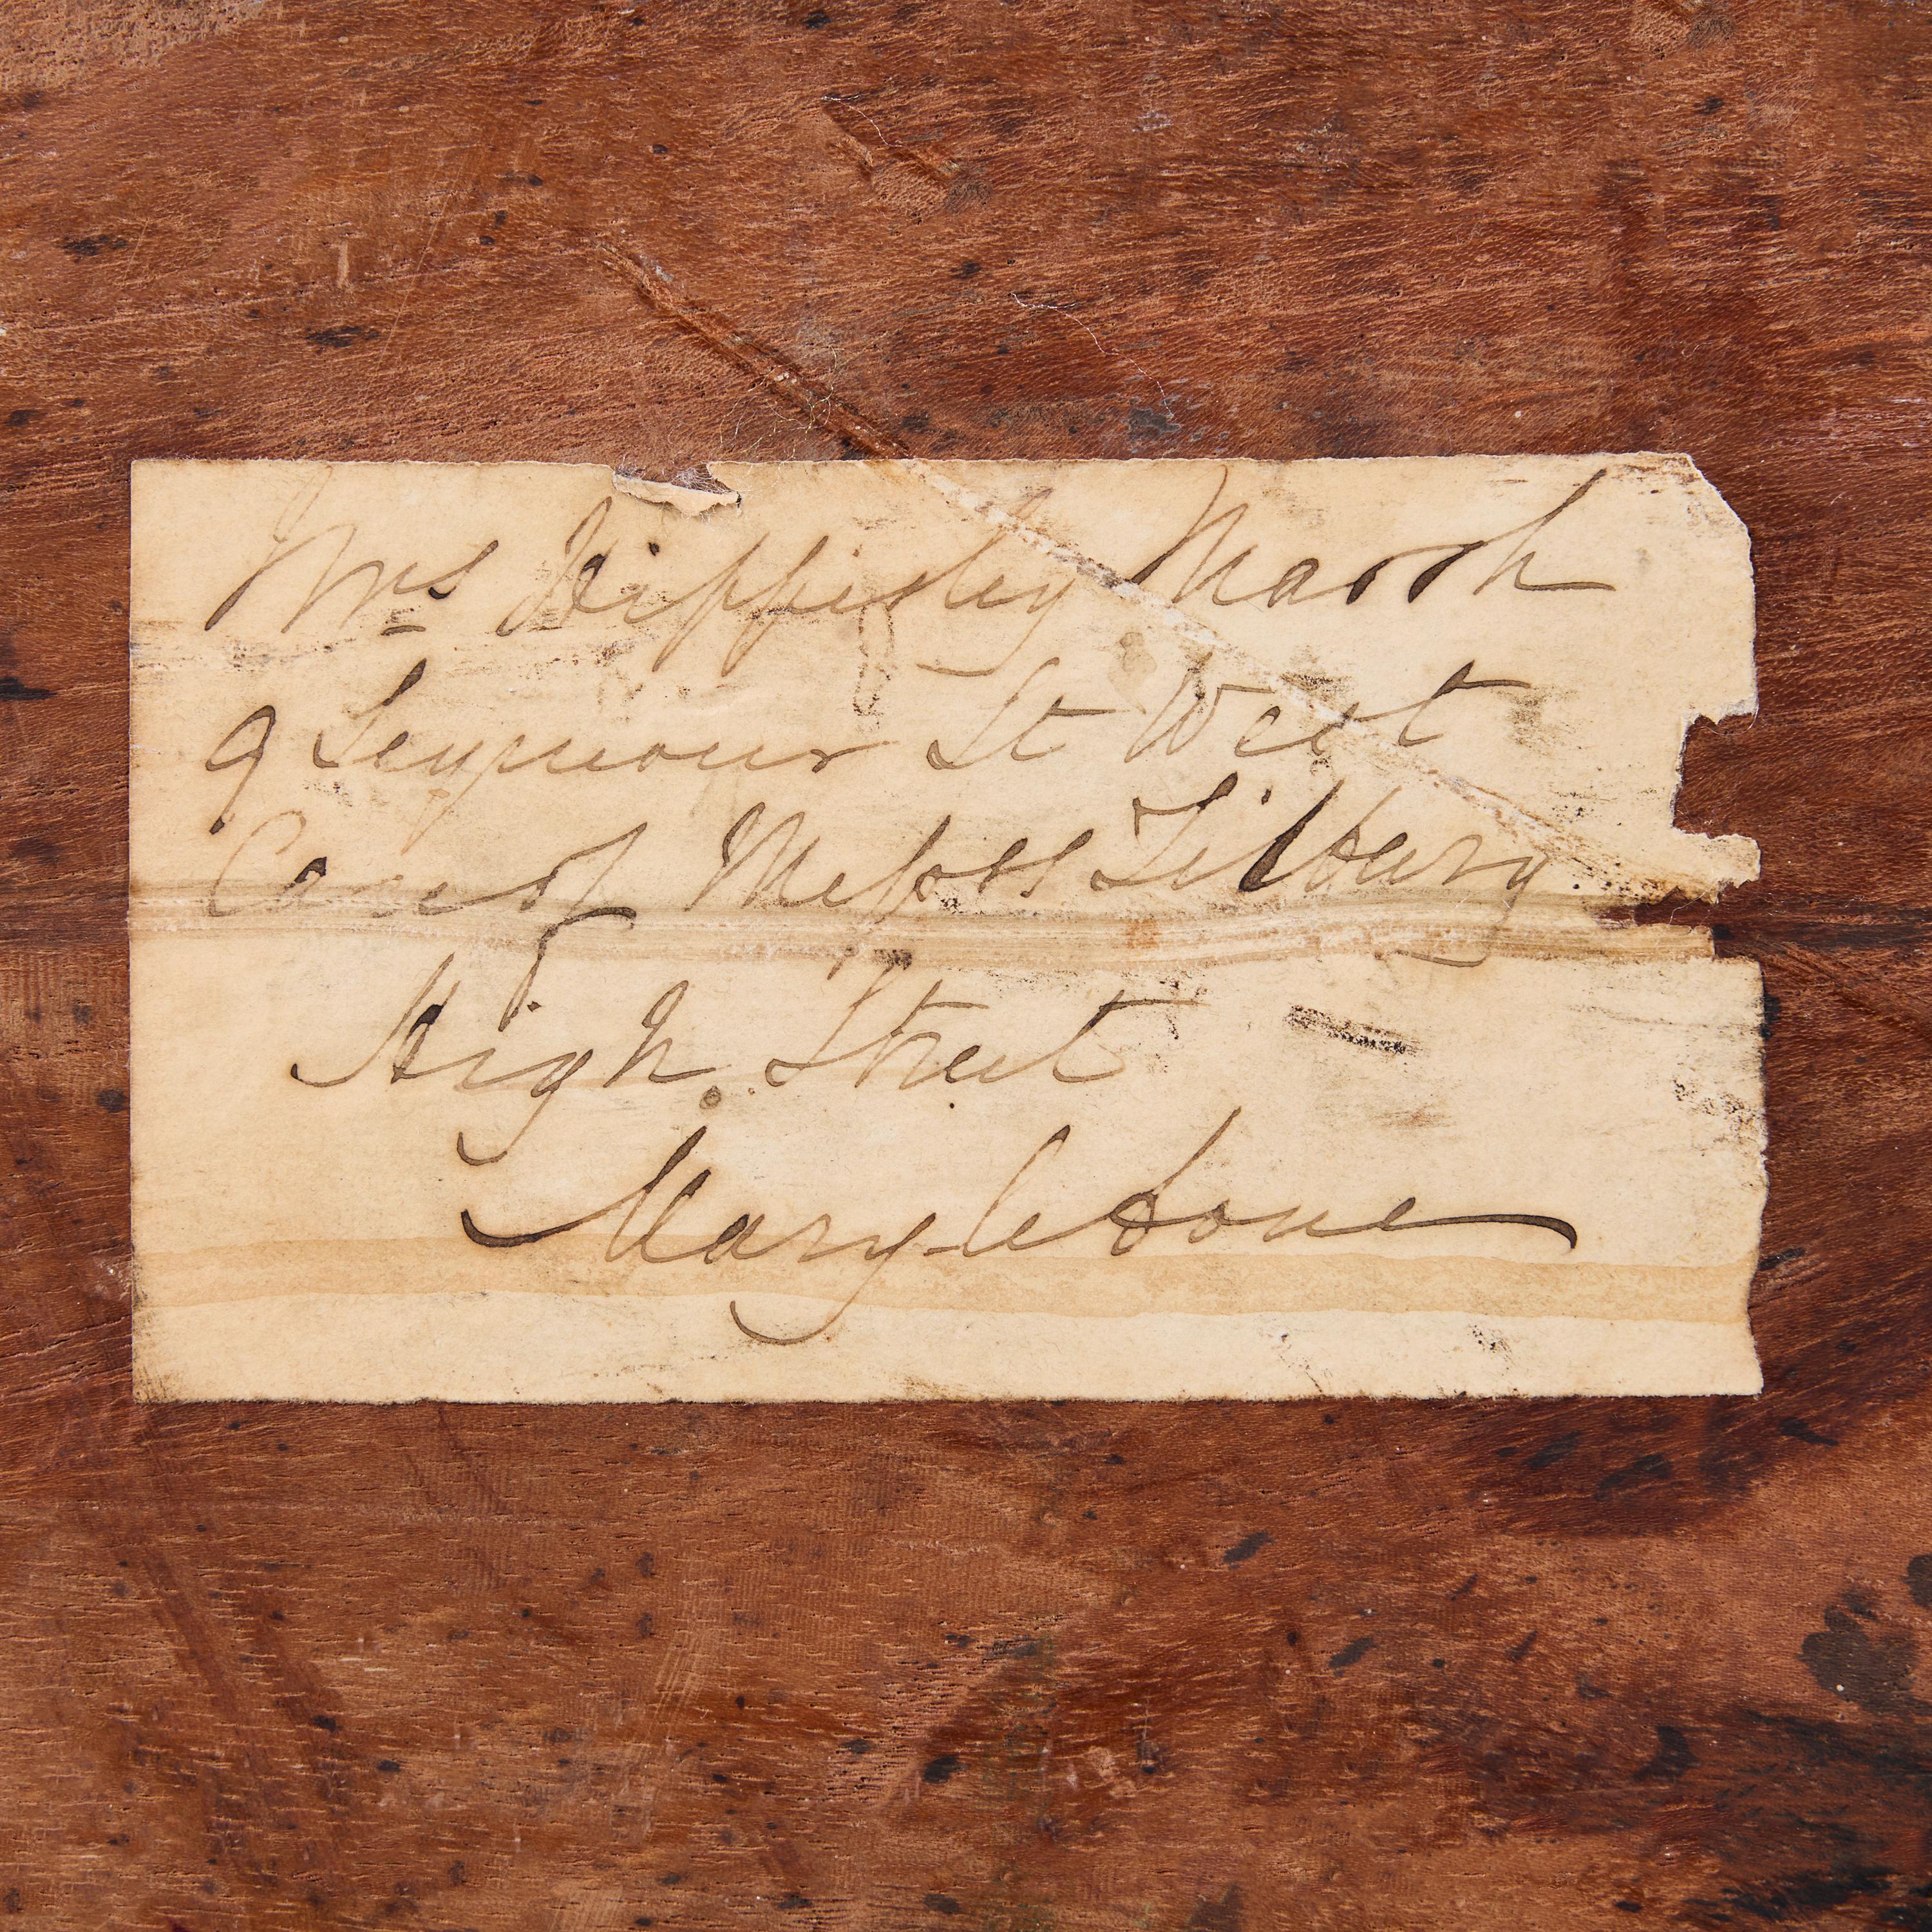 Mrs Hippisley Marsh
9 Seymour St West
Care of Messrs Tilbury
High Street
Marylebone